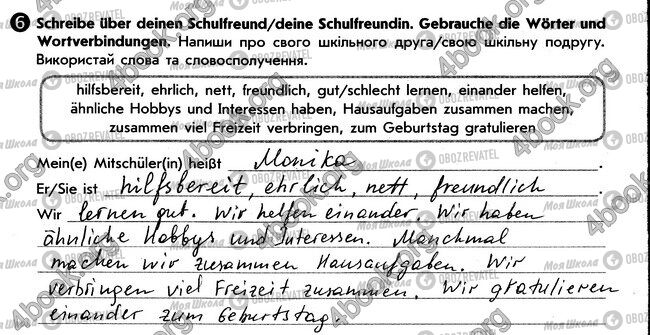 6 Schreibe über deinen Schulfreund/deine Schulfreundin. Gebrauche die Wörter und
Wortverbindungen. Напиши про свого шкільного друга/свою шкільну подругу.
Використай слова та словосполучення.
hilfsbereit, ehrlich, nett, freundlich, gut/schlecht lernen, einander helfen,
ähnliche Hobbys und Interessen haben, Hausaufgaben zusammen machen,
zusammen viel Freizeit verbringen, zum Geburtstag gratulieren
Mein(e) Mitschüler(in) heißt Monika.
Er/Sie ist hilfsbereit, ehrlich, nett, freundlich
Wir lernen gut. Wir helfen einander. Wir haben
ähnliche Hobbys und Interessen. Manchmal
machen wir zusammen Hausaufgaben. Wir
verbringen viel Freizeit zusammen. Wir gratulieren
einander zum Geburtstag.